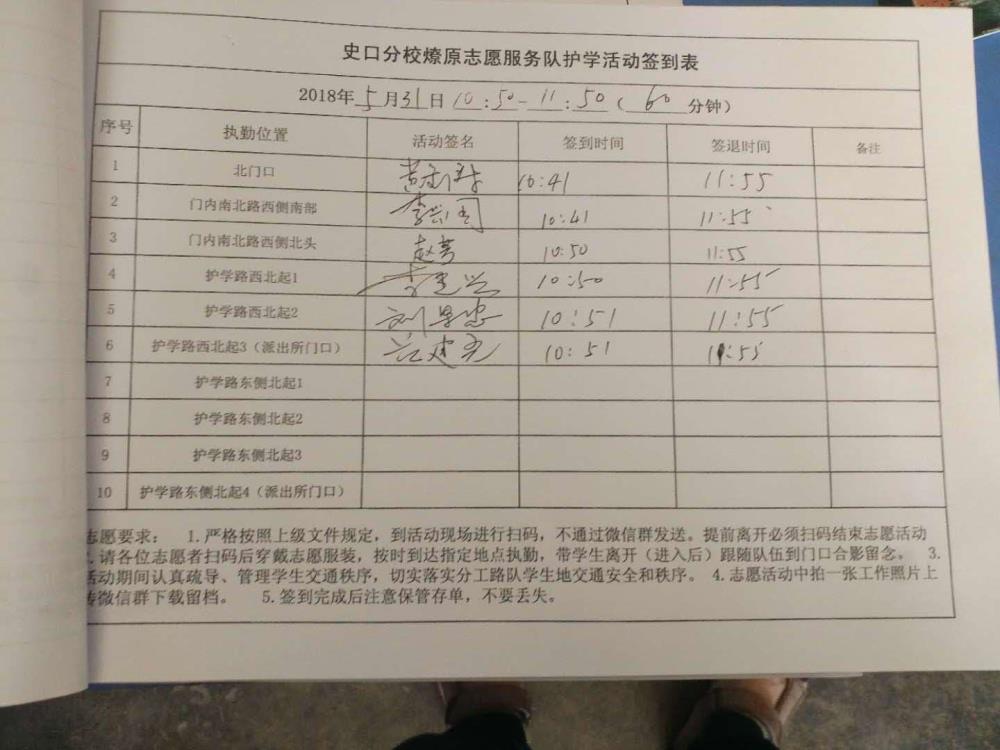 史口分校燎原志愿服务队护学活动签到表
2018年5月31日10:50-11:50(60分钟)
序号 执勤位置 活动签名 签到时间 签退时间 备注
1 北门口 10:41 11:55
2 门内南北路西侧南部 10:41 11:55
3 门内南北路西侧北头 10:50 11:55
4 护学路西北起1 李建兴 10:50 11:55
5 护学路西北起2 10:51 11:55
6 护学路西北起3(派出所门口) 10:51 11:55
7 护学路东侧北起1
8 护学路东侧北起2
9 护学路东侧北起3
10 护学路东侧北起4(派出所门口)
志愿要求: 1.严格按照上级文件规定,到活动现场进行扫码,不通过微信群发送。提前离开必须扫码结束志愿活动
.请各位志愿者扫码后穿戴志愿服装,按时到达指定地点执勤,带学生离开(进入后)跟随队伍到门口合影留念。 3.
活动期间认真疏导、管理学生交通秩序,切实落实分工路队学生地交通安全和秩序。 4.志愿活动中拍一张工作照片上
传微信群下载留档。 5.签到完成后注意保管存单,不要丢失。